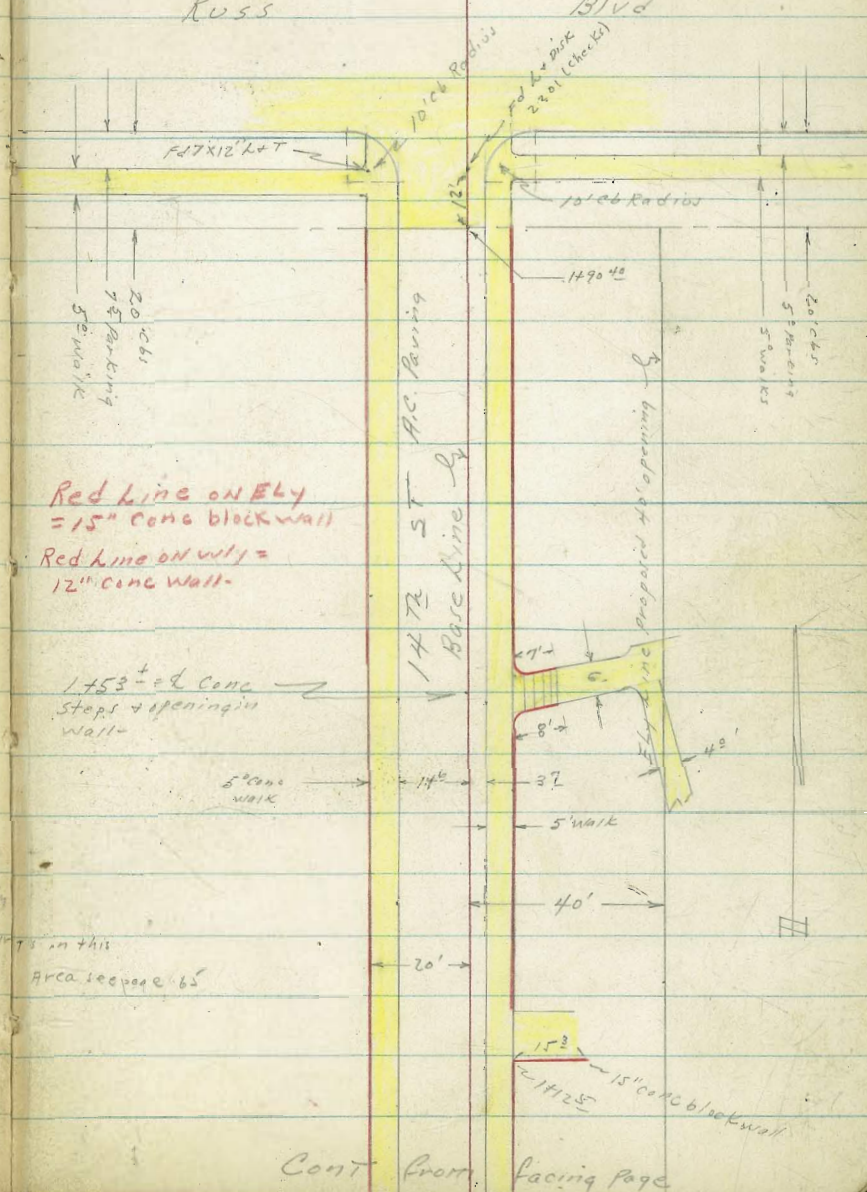 Russ Blvd
10' Cb Radius
Fd L & Disk
2301 (checks)
Fd 7x12" L & T
12'
10' Cb Radius
1+90 40
20' Cbs
7 5 Parking
5 0 Walk
20' Cbs
5 0 Parking
5 0 Walks
14 Th ST A.C. Paving
Base Line
Ely Line proposed 40' opening
Red Line on Ely
= 15" Conc block wall
Red Line on Wly =
12" Conc Wall-
1+53 ± = ℄ Conc
Steps & opening in
Wall-
7'
6'
8'
4 0'
5 0 Conc
walk
14 6
3 7
5' Walk
40'
in this
Area see page 65
20'
15 3
15" Conc block wall
1+12 5
Cont from facing page